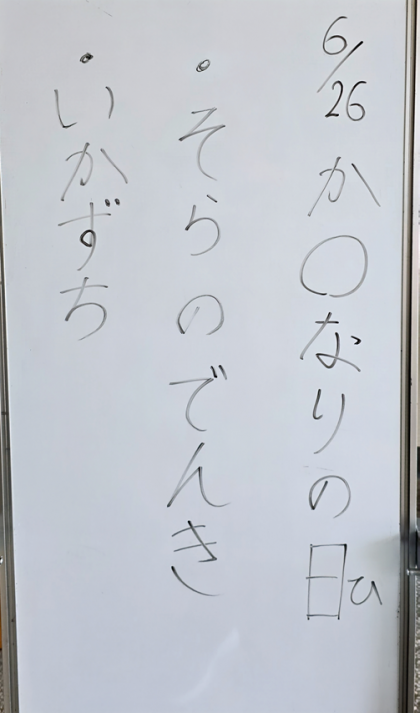 6/26 か〇なりの日ひ
・そらのでんき
・いかずち